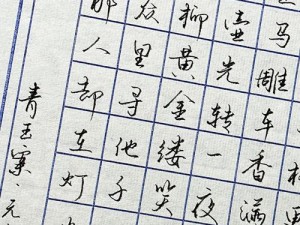 马雕车香满
光转一夜
柳黄金缕笑
众里寻他千
那人却在灯
青玉案·元